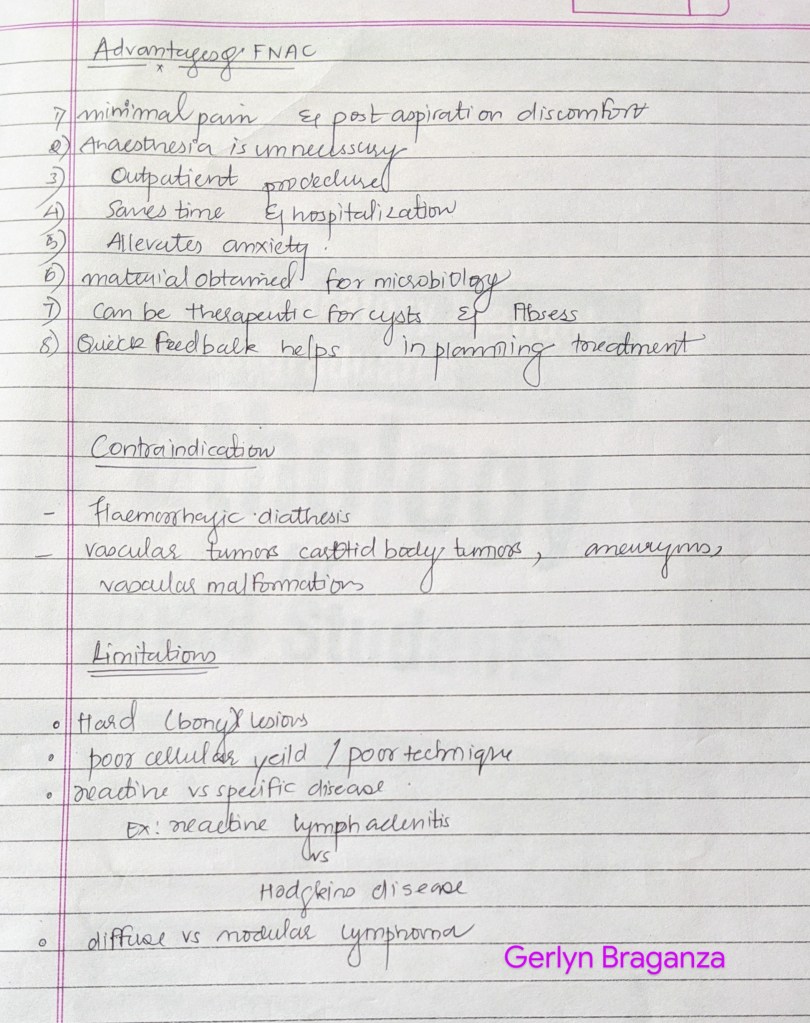 Advantages of FNAC
1) minimal pain & post aspiration discomfort
2) Anaesthesia is unnecessary
3) Outpatient procedure
4) Saves time & hospitalization
5) Allevates anxiety.
6) material obtained for microbiology
7) Can be therapeutic for cysts & Absess
8) Quick feedback helps in planning treatment
Contraindication
- Haemorrhagic diathesis
- vascular tumors carotid body tumors, aneuryms,
vascular malformations
Limitations
• Hard (bony) lesions
• poor cellular yeild / poor technique
• reactive vs specific disease
Ex: reactive lymphadenitis
vs
Hodgkins disease
• diffuse vs nodular lymphoma
Gerlyn Braganza